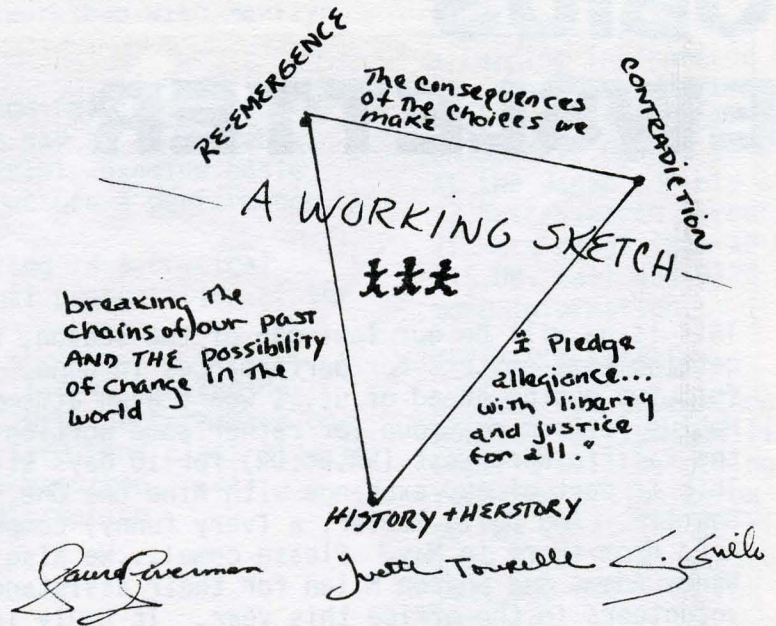 RE-EMERGENCE
The consequences
of the choices we
make
CONTRADICTION
A WORKING SKETCH
breaking the
chains of our past
AND THE possibility
of change in the
world
"I Pledge
allegiance...
with liberty
and justice
for all."
HISTORY + HERSTORY